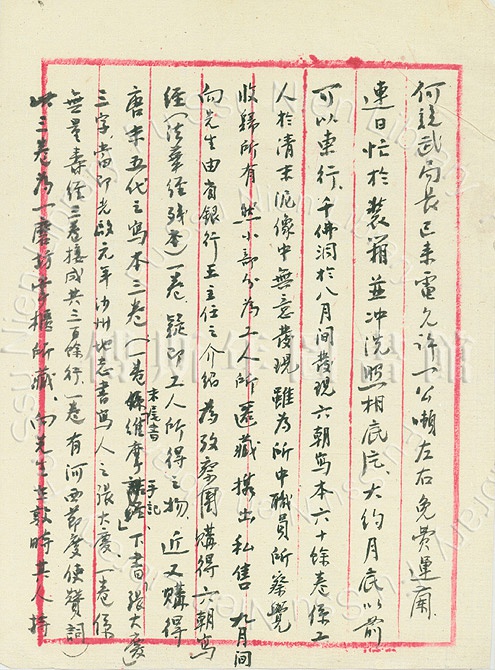 何競武局長已來電允許一公噸左右免費運蘭、
連日忙於裝箱並沖洗照相底片、大約月底以前
可以東行、千佛洞於八月間發現六朝寫本六十餘卷係工
人於清末泥像中無意發現雖為所中職員所察覺
收歸所有、然小部分為工人所匿藏攜出私售 九月間
向先生由省銀行王主任之介紹為攷察團購得六朝寫
經(法華經殘本)一卷、疑即工人所得之物、近又購得
唐末五代之寫本三卷(一卷係維摩 末尾書「手記」下書「張大慶」
三字當即光啟元年沙州地志書寫人之張大慶、一卷係
無量壽經三卷接成共三百餘行、一卷有河西節度使贊詞)
此三卷為一磨坊掌櫃所藏、向先生在敦時其人持
傅斯年圖書館